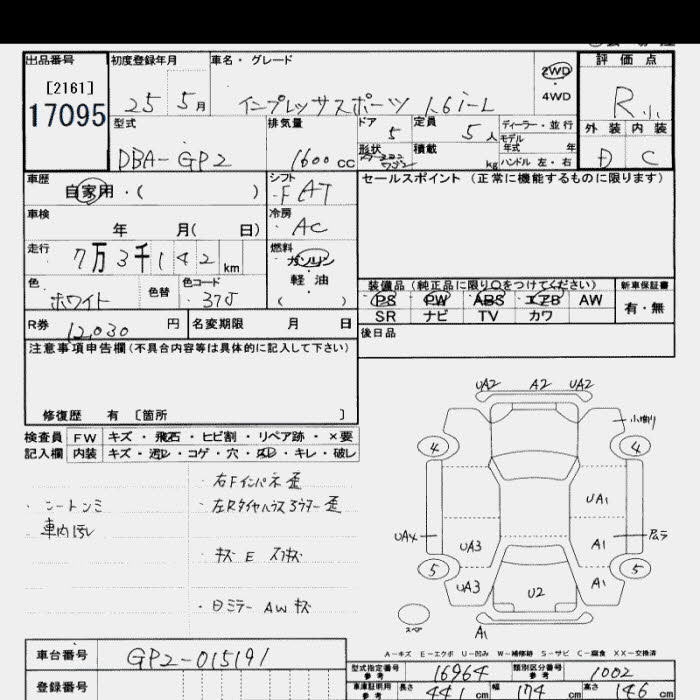 出品番号 初度登録年月 車名・グレード 2WD 4WD 評価点
[2161]
17095
25 5月 インプレッサスポーツ 1.6i-L R
型式 排気量 ドア 5 定員 5人 ディーラー・並行 外装 内装
DBA-GP2 1600cc 形状 積載 kg モデル年式 年 ハンドル 左・右 D C
車歴 自家用・( ) シフト FAT セールスポイント (正常に機能するものに限ります)
車検 年 月( 日) 冷房 AC
走行 7万3千142km 燃料 ガソリン 軽油 ( )
色 ホワイト 色替 色コード 37J
装備品(純正品に限り○をつけてください) 新車保証書
PS PW ABS エアB AW 有・無
SR ナビ TV カワ
R券 12,030円 名変期限 月 日 後日品
注意事項申告欄(不具合内容等は具体的に記入して下さい)
修復歴 有 〔箇所 〕
検査員 FW キズ・飛石・ヒビ割・リペア跡・×要
記入欄 内装 キズ・汚レ・コゲ・穴・スレ・キレ・破レ
右Fインパネ歪
シートシミ 左Rタイヤハウスフロアー歪
車内汚レ
キズ E スリキズ
日ミラー AW キズ
UA2 A2 UA2
4 4
UA1
UA3 A1
5 5
UA3 U2 A1
スペア
A1
A-キズ E-エクボ U-凹み W-補修跡 S-サビ C-腐食 XX-交換済
車台番号 GP2-015191
型式指定番号 参考 16964 類別区分番号 参考 1002
登録番号 車庫証明用 参考 長さ 441cm 幅 174cm 高さ 146cm